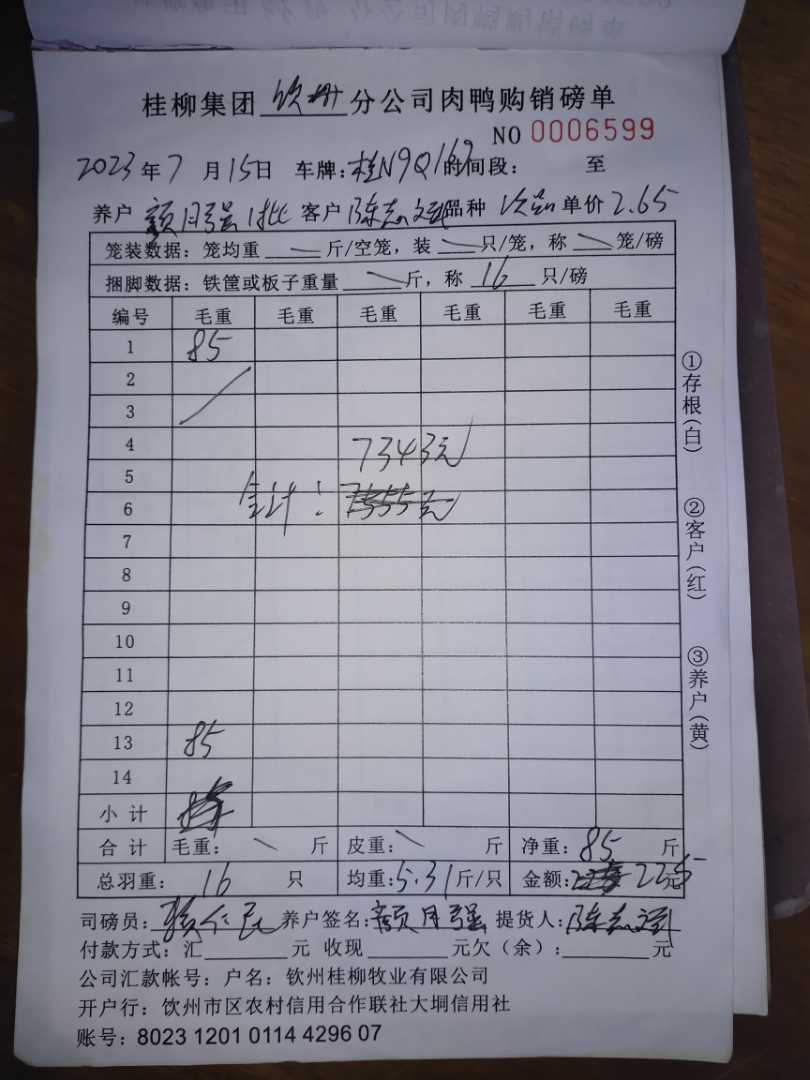 桂柳集团 钦州 分公司肉鸭购销磅单
NO 0006599
2023年7月15日 车牌:桂N9Q167 时间段: 至
养户 颜月强1批 客户 陈志斌 品种 次品 单价 2.65
笼装数据: 笼均重 斤/空笼, 装 只/笼, 称 笼/磅
捆脚数据: 铁筐或板子重量 斤, 称 16 只/磅
编号 毛重 毛重 毛重 毛重 毛重 毛重
1 85
2
3
4 7343元
5
6 合计: 7555元
7
8
9
10
11
12
13 85
14
小计
合计 毛重: 斤 皮重: 斤 净重: 85 斤
总羽重: 16 只 均重: 5.31 斤/只 金额: 225元
司磅员: 养户签名: 颜月强 提货人: 陈志斌
付款方式: 汇 元 收现 元欠(余): 元
公司汇款帐号: 户名: 钦州桂柳牧业有限公司
开户行: 钦州市区农村信用合作联社大垌信用社
账号: 8023 1201 0114 4296 07
①存根(白)
②客户(红)
③养户(黄)